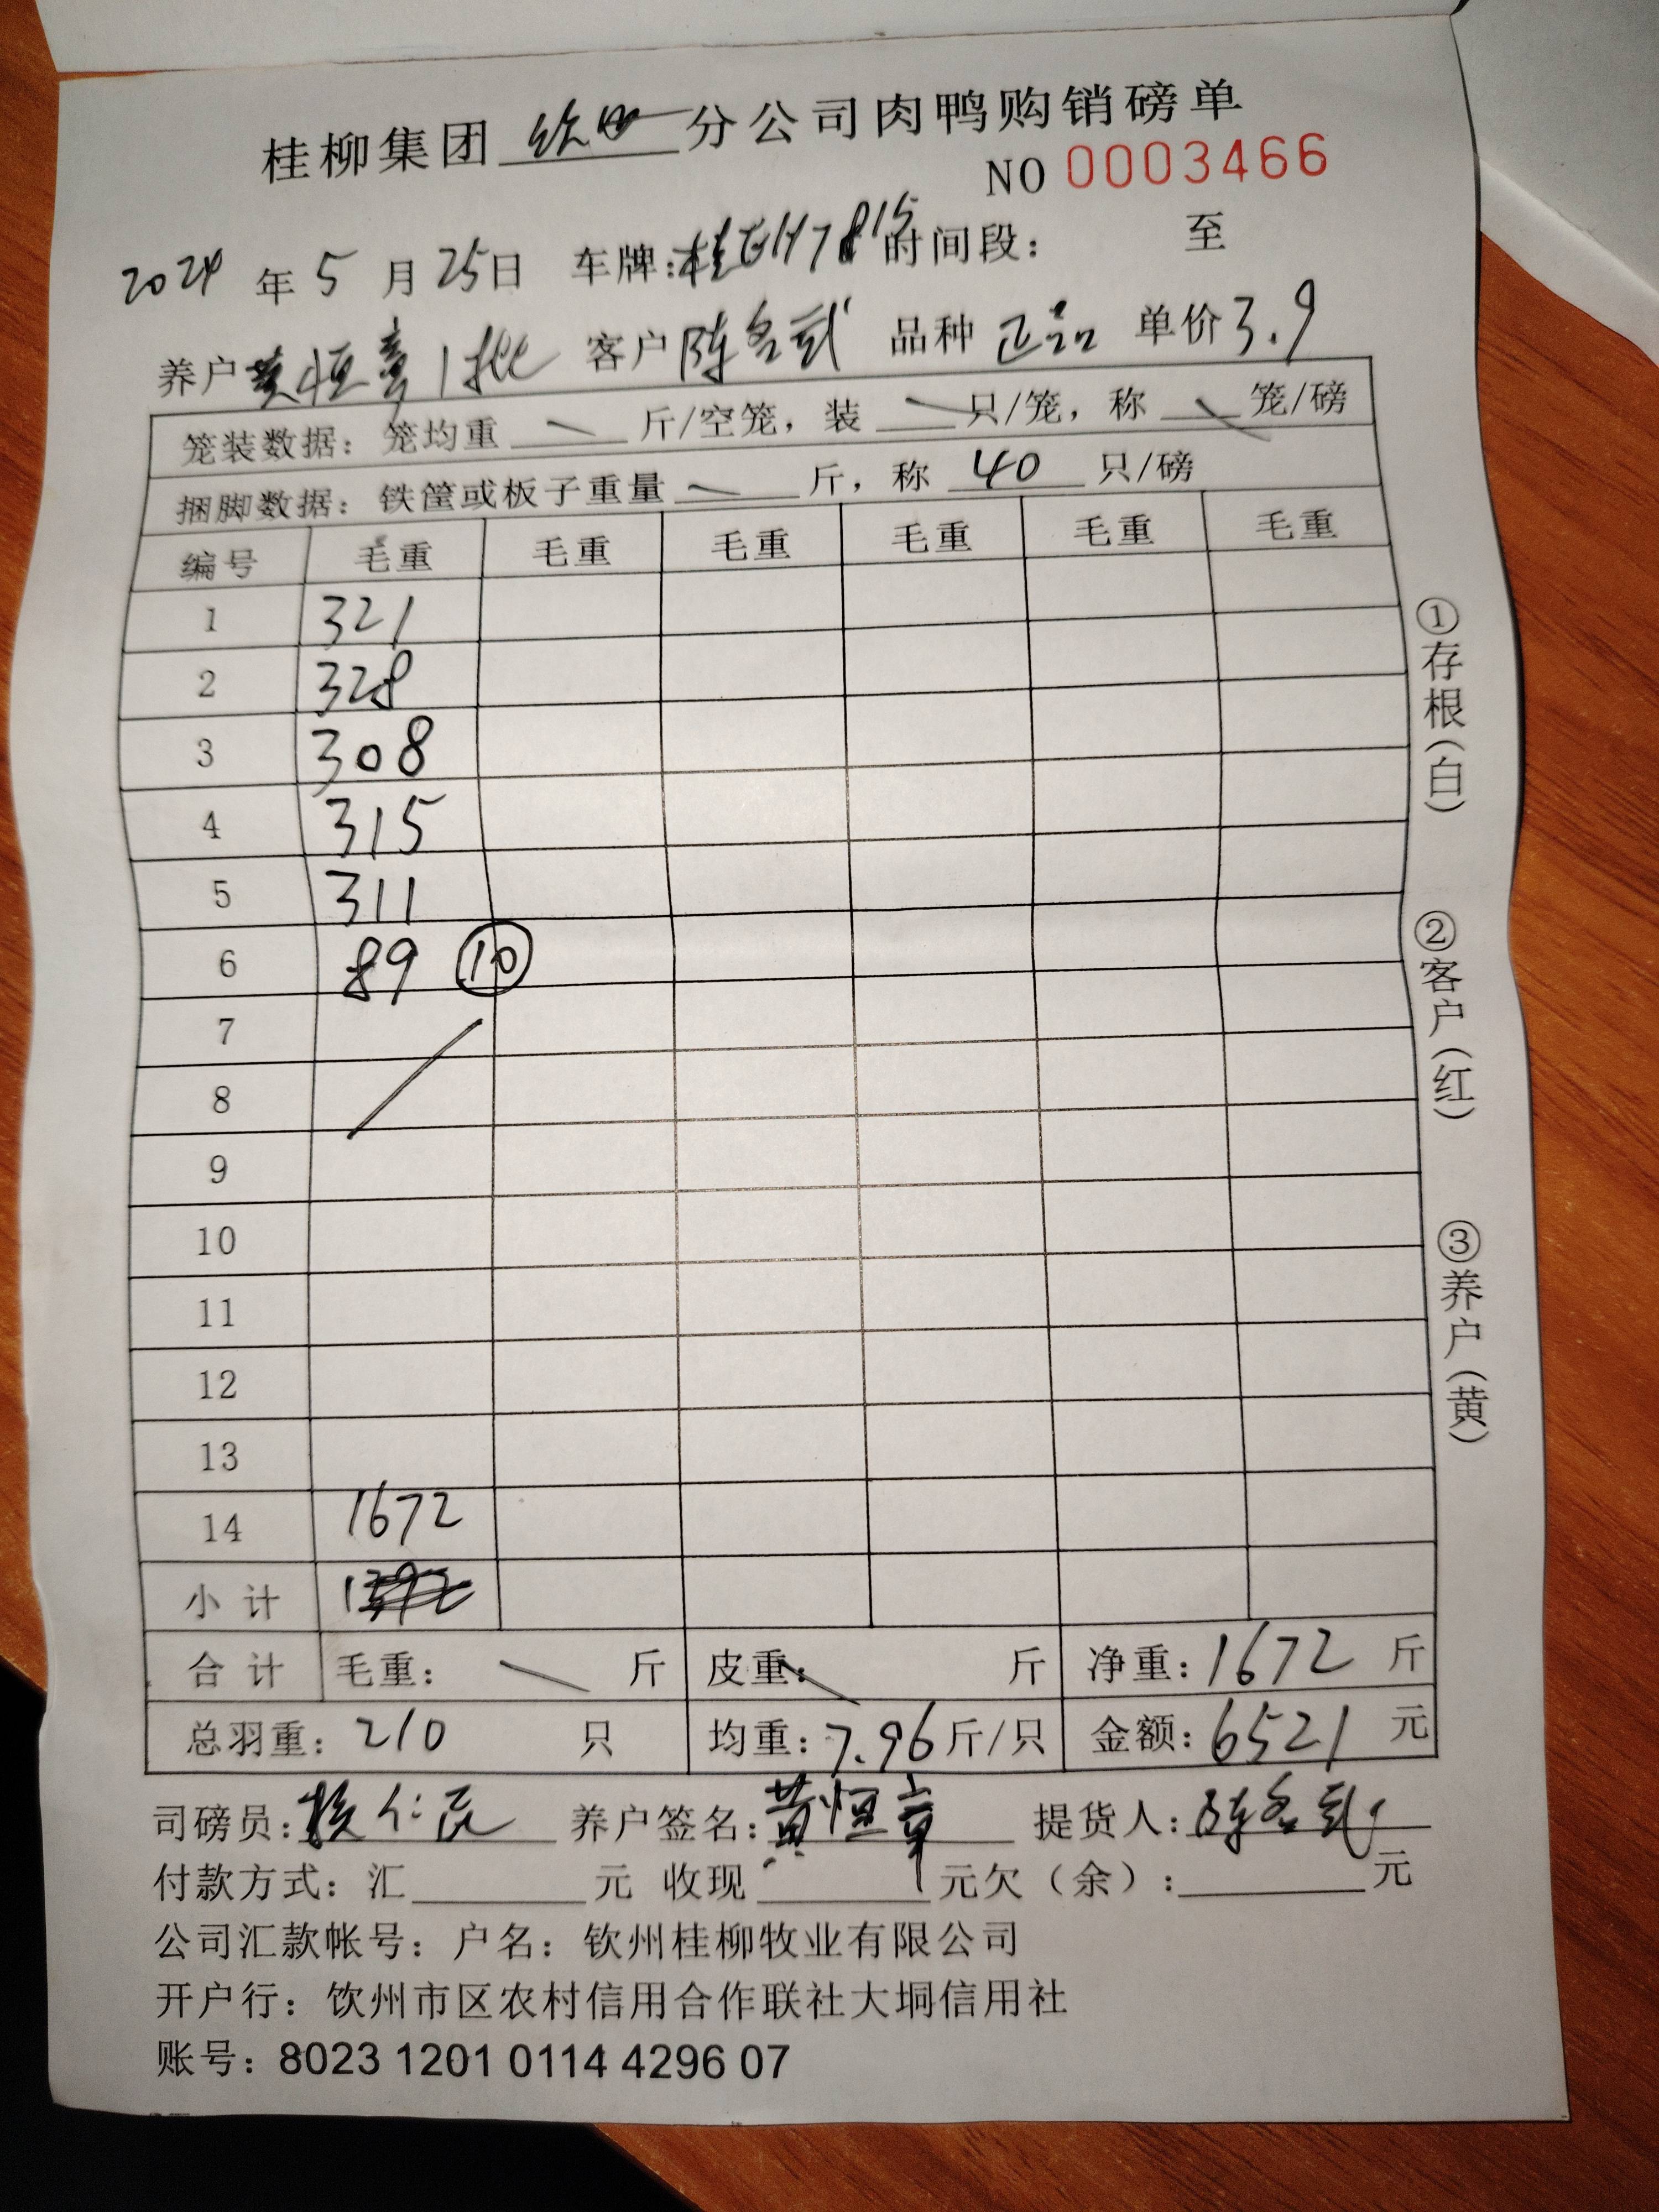 桂柳集团 钦州 分公司肉鸭购销磅单
NO 0003466
2024 年 5 月 25日 车牌: 时间段: 至
养户 黄恒章 1批 客户 陈名武 品种 正品 单价 3.9
笼装数据: 笼均重 斤/空笼, 装 只/笼, 称 笼/磅
捆脚数据: 铁筐或板子重量 斤, 称 40 只/磅
编号 毛重 毛重 毛重 毛重 毛重 毛重
1 321
2 328
3 308
4 315
5 311
6 89 ⑩
7
8
9
10
11
12
13
14 1672
小计
合计 毛重: 斤 皮重: 斤 净重: 1672 斤
总羽重: 210 只 均重: 7.96 斤/只 金额: 6521 元
司磅员: 仁民 养户签名: 黄恒章 提货人: 陈名武
付款方式: 汇 元 收现 元欠(余): 元
公司汇款帐号: 户名: 钦州桂柳牧业有限公司
开户行: 钦州市区农村信用合作联社大垌信用社
账号: 8023 1201 0114 4296 07
①存根(白)
②客户(红)
③养户(黄)